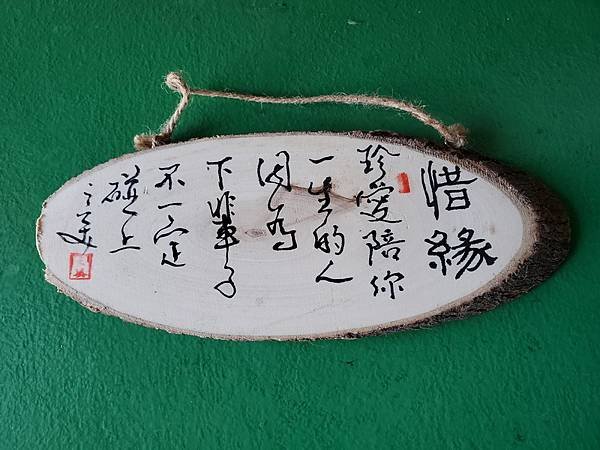 惜緣
珍愛陪你
一生的人
因為
下輩子
不一定
碰上